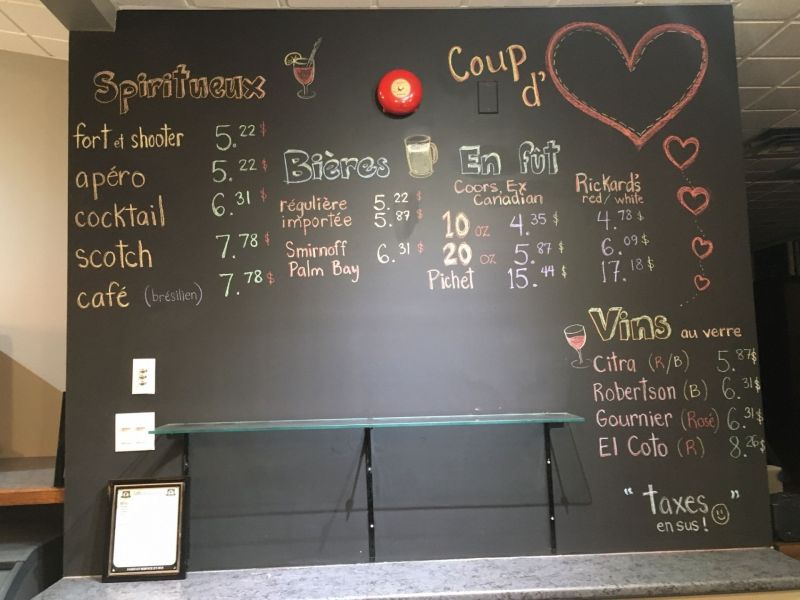 Spiritueux
fort et shooter 5.22 $
apéro 5.22 $
cocktail 6.31 $
scotch 7.78 $
café (brésilien) 7.78 $
Bières
régulière 5.22 $
importée 5.87 $
Smirnoff 6.31 $
Palm Bay
Coup d'
En fût
Coors, Ex
Canadian
Rickard's
red/white
10 oz 4.35 $ 4.78 $
20 oz 5.87 $ 6.09 $
Pichet 15.44 $ 17.18 $
Vins au verre
Citra (R/B) 5.87 $
Robertson (B) 6.31 $
Gournier (Rosé) 6.31 $
El Coto (R) 8.26 $
"taxes
en sus!"